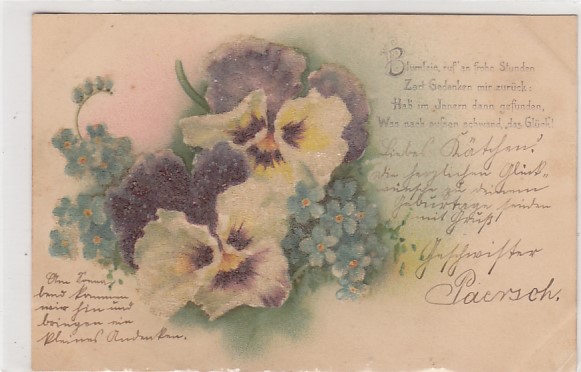 Blümlein, ruf' an frohe Stunden
Zart Gedenken mir zurück:
Hab' im Innern dann gefunden,
Was nach außen schwand, das Glück!
Liebes Kätchen!
Die herzlichen Glück-
wünsche zu deinem
Geburtstage senden
mit Gruß
Geschwister
Paersch.
Am Sonna-
bend kommen
wir hin und
bringen ein
kleines Andenken.